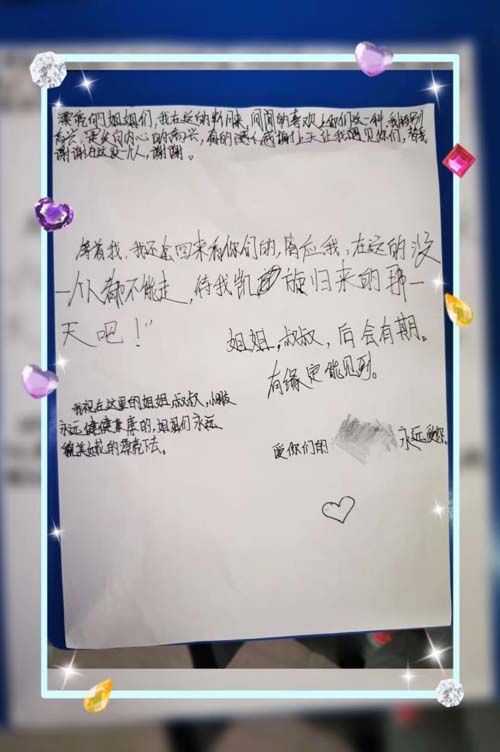 漂亮的姐姐们,我在这的半月来,同同的喜欢上你们这一种,我特别
高兴,是发自内心的高兴,真的谢谢感谢上天让我遇见你们,替我
谢谢在这多个人,谢谢。
等着我,我还会回来看你们的,答应我,在这的没
一个人都不能走,待我凯旋归来的那一
天吧!
姐姐,叔叔,后会有期。
有缘定能见到。
我祝在这里的姐姐叔叔,小朋友
永远健健康康的,姐姐们永远
貌美如花的漂亮下去。
爱你们的 永远爱你